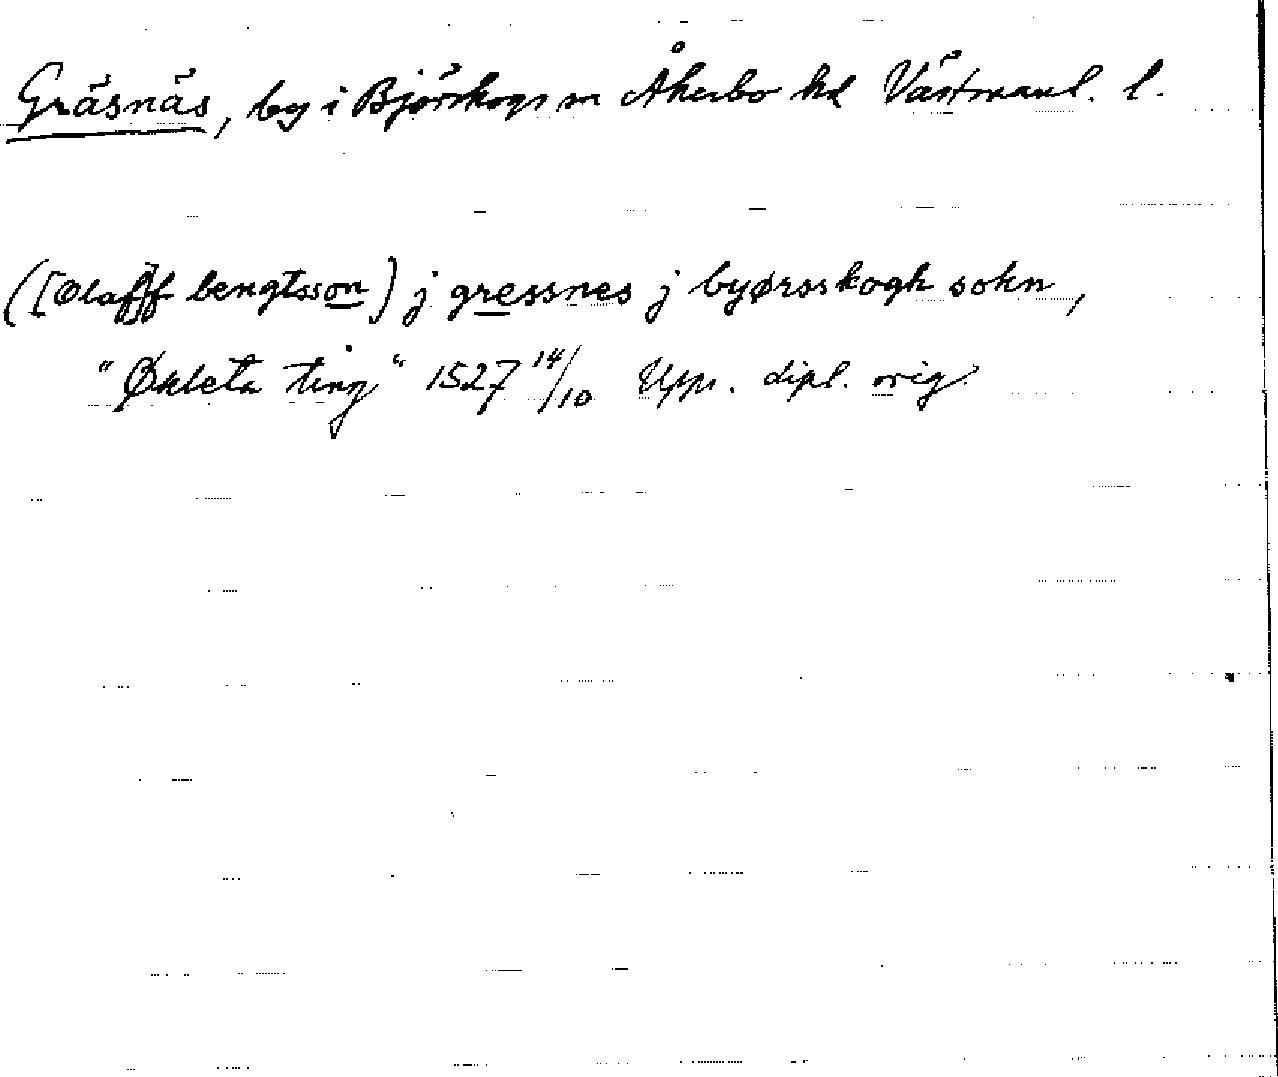 Gräsnäs, by i Björskogs sn Åkerbo hd Västmanl. l.
([Olaff bengtsson) j gressnes j byørsskogh sokn,
"Økleta ting" 1527 14/10 Upps. dipl. orig.